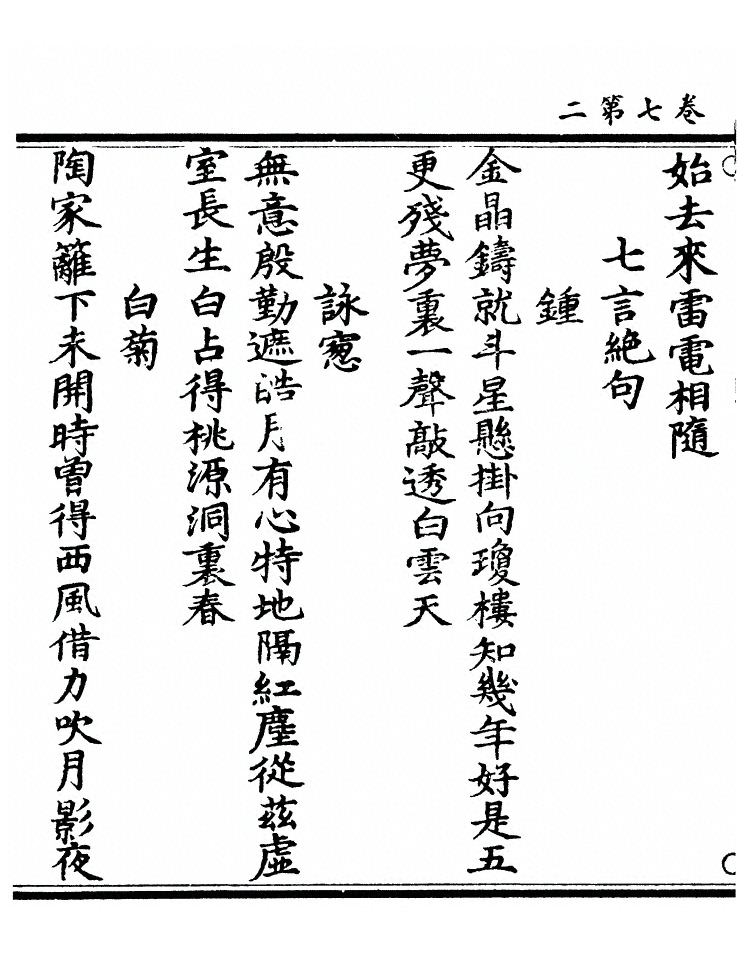 卷七第二
始去來雷電相隨
七言絶句
鍾
金晶鑄就斗星懸掛向瓊樓知幾年好是五
更殘夢裏一聲敲透白雲天
詠窻
無意殷勤遮皓月有心特地隔紅塵從茲虛
室長生白占得桃源洞裏春
白菊
陶家籬下未開時曾得西風借力吹月影夜